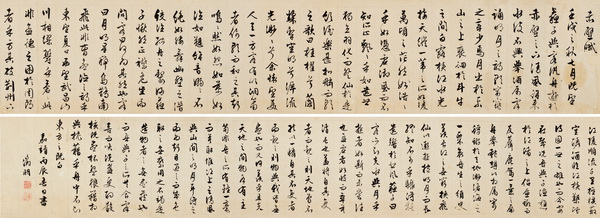 赤壁賦
壬戌之秋七月既望
蘇子與客泛舟遊於
赤壁之下清風徐來
水波不興舉酒屬客
誦明月之詩歌窈窕
之章少焉月出於東
山之上裴徊於斗牛
之間白露橫江水光
接天縱一葦之所如凌
萬頃之茫然浩浩
乎如馮虛御風而不
知其所止飄飄乎如遺世
獨立羽化而登仙於是
飲酒樂甚扣舷而歌
之歌曰桂棹兮蘭
槳擊空明兮泝流
光渺渺兮余懷望美
人兮天一方客有吹洞簫
者倚歌而和之其聲
嗚嗚然如怨如慕如
泣如訴餘音嫋嫋不
絕如縷舞幽壑之潛
蛟泣孤舟之嫠婦蘇
子愀然正襟危坐而
問客曰何為其然也客
曰月明星稀烏鵲南
飛此非曹孟德之詩乎西望夏口
東望武昌山
川相繆鬱乎蒼蒼此
非孟德之困於周郎
者乎方其破荊州下
江陵順流而東也舳艫千里旌旗蔽
空釃酒臨江橫槊賦詩
固一世之雄也而今安在
哉況吾與子漁樵於江渚之上侶魚蝦而
友麋鹿駕一葉之扁舟
舉匏樽以相屬寄蜉
蝣於天地渺滄海之
一粟哀吾生之須臾
羨長江之無窮挾飛
仙以遨遊抱明月而長
終知不可乎驟得託
遺響於悲風蘇子曰
客亦知夫水與月乎
逝者如斯而未嘗往
也盈虛者如彼而卒
莫消長也蓋將自其
變者而觀之則天地曾不能
以一瞬自其不變者
而觀之則物與我皆無
盡也而又何羨乎且夫
天地之間物各有主
苟非吾之所有雖一毫
而莫取惟江上之清風
與山間之明月耳得之
而為聲目遇之而成色取
之無禁用之不竭是
造物者之無盡藏也
而吾與子之所共食客喜
而笑洗盞更酌肴
核既盡杯盤狼藉相
與枕藉乎舟中不知
東方之既白
嘉靖丙辰
徵明